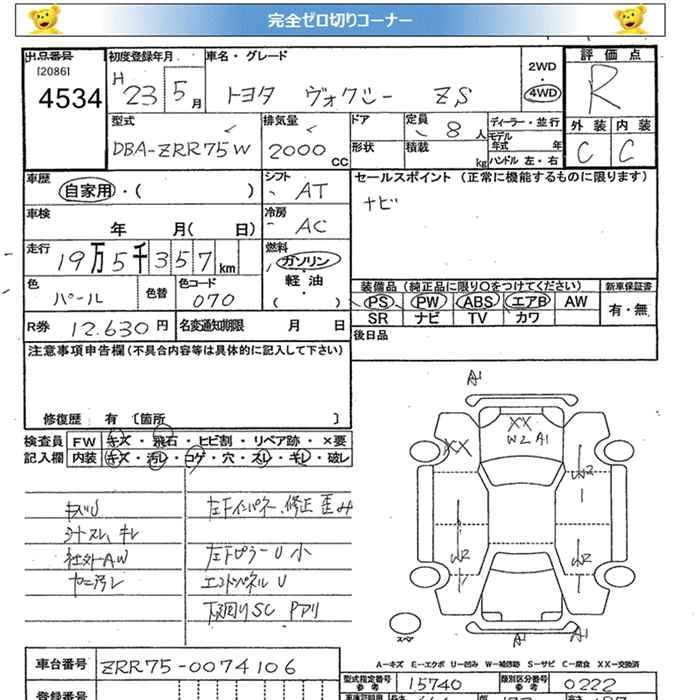 完全ゼロ切りコーナー
出品番号
[2086]
4534
初度登録年月
H 23 5月
車名・グレード
トヨタ ヴォクシー ZS
2WD
・
4WD
評価点
R
外装 内装
C C
型式
DBA-ZRR75W
排気量
2000 CC
ドア
形状
定員
8 人
積載
kg
ディーラー・並行
モデル年式 年
ハンドル 左・右
車歴
自家用・( )
シフト
AT
セールスポイント (正常に機能するものに限ります)
ナビ
車検
年 月( 日)
冷房
AC
走行
19万5千357km
燃料
ガソリン
軽油
( )
色
パール
色替
色コード
070
装備品 (純正品に限り○をつけてください)
新車保証書
PS PW ABS エアB AW
SR ナビ TV カワ
有・無
R券 12.630円
名変通知期限 月 日
後日品
注意事項申告欄(不具合内容等は具体的に記入して下さい)
修復歴 有 〔箇所 〕
検査員
記入欄
FW キズ・飛石・ヒビ割・リペア跡・×要
内装 キズ・汚レ・コゲ・穴・スレ・キレ・破レ
キズU
シートスレ、キレ
社外AW
ヤニ汚レ
左Fインパネ、修正歪み
左Fピラー U 小
エンドパネル U
下廻りSC Pアリ
A1
XX
W2 A1
XX
W2
W2
W2
A1
A1
スペア
A-キズ E-エクボ U-凹み W-補修跡 S-サビ C-腐食 XX-交換済
車台番号
ZRR75-0074106
型式指定番号
参考
15740
類別区分番号
参考
0222
登録番号